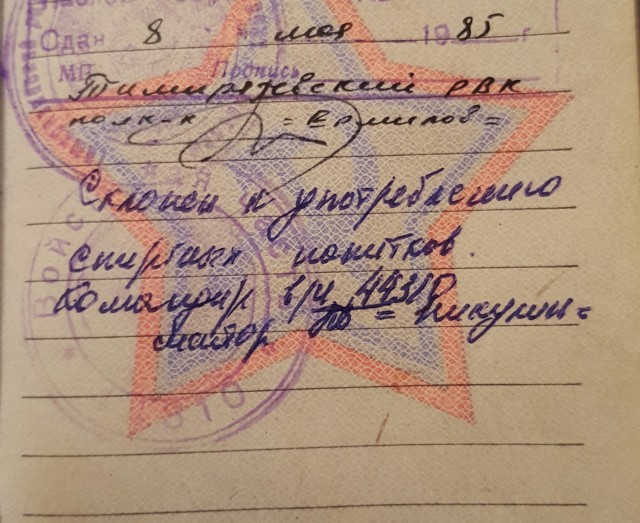 Сдан 8 мая 1985 г
МП Пропись
Тимирязевский РВК
полк-к = Ермилов =
Склонен к употреблению
спиртных напитков.
Командир в/ч 44310
майор = Никулин =
ВОЙС